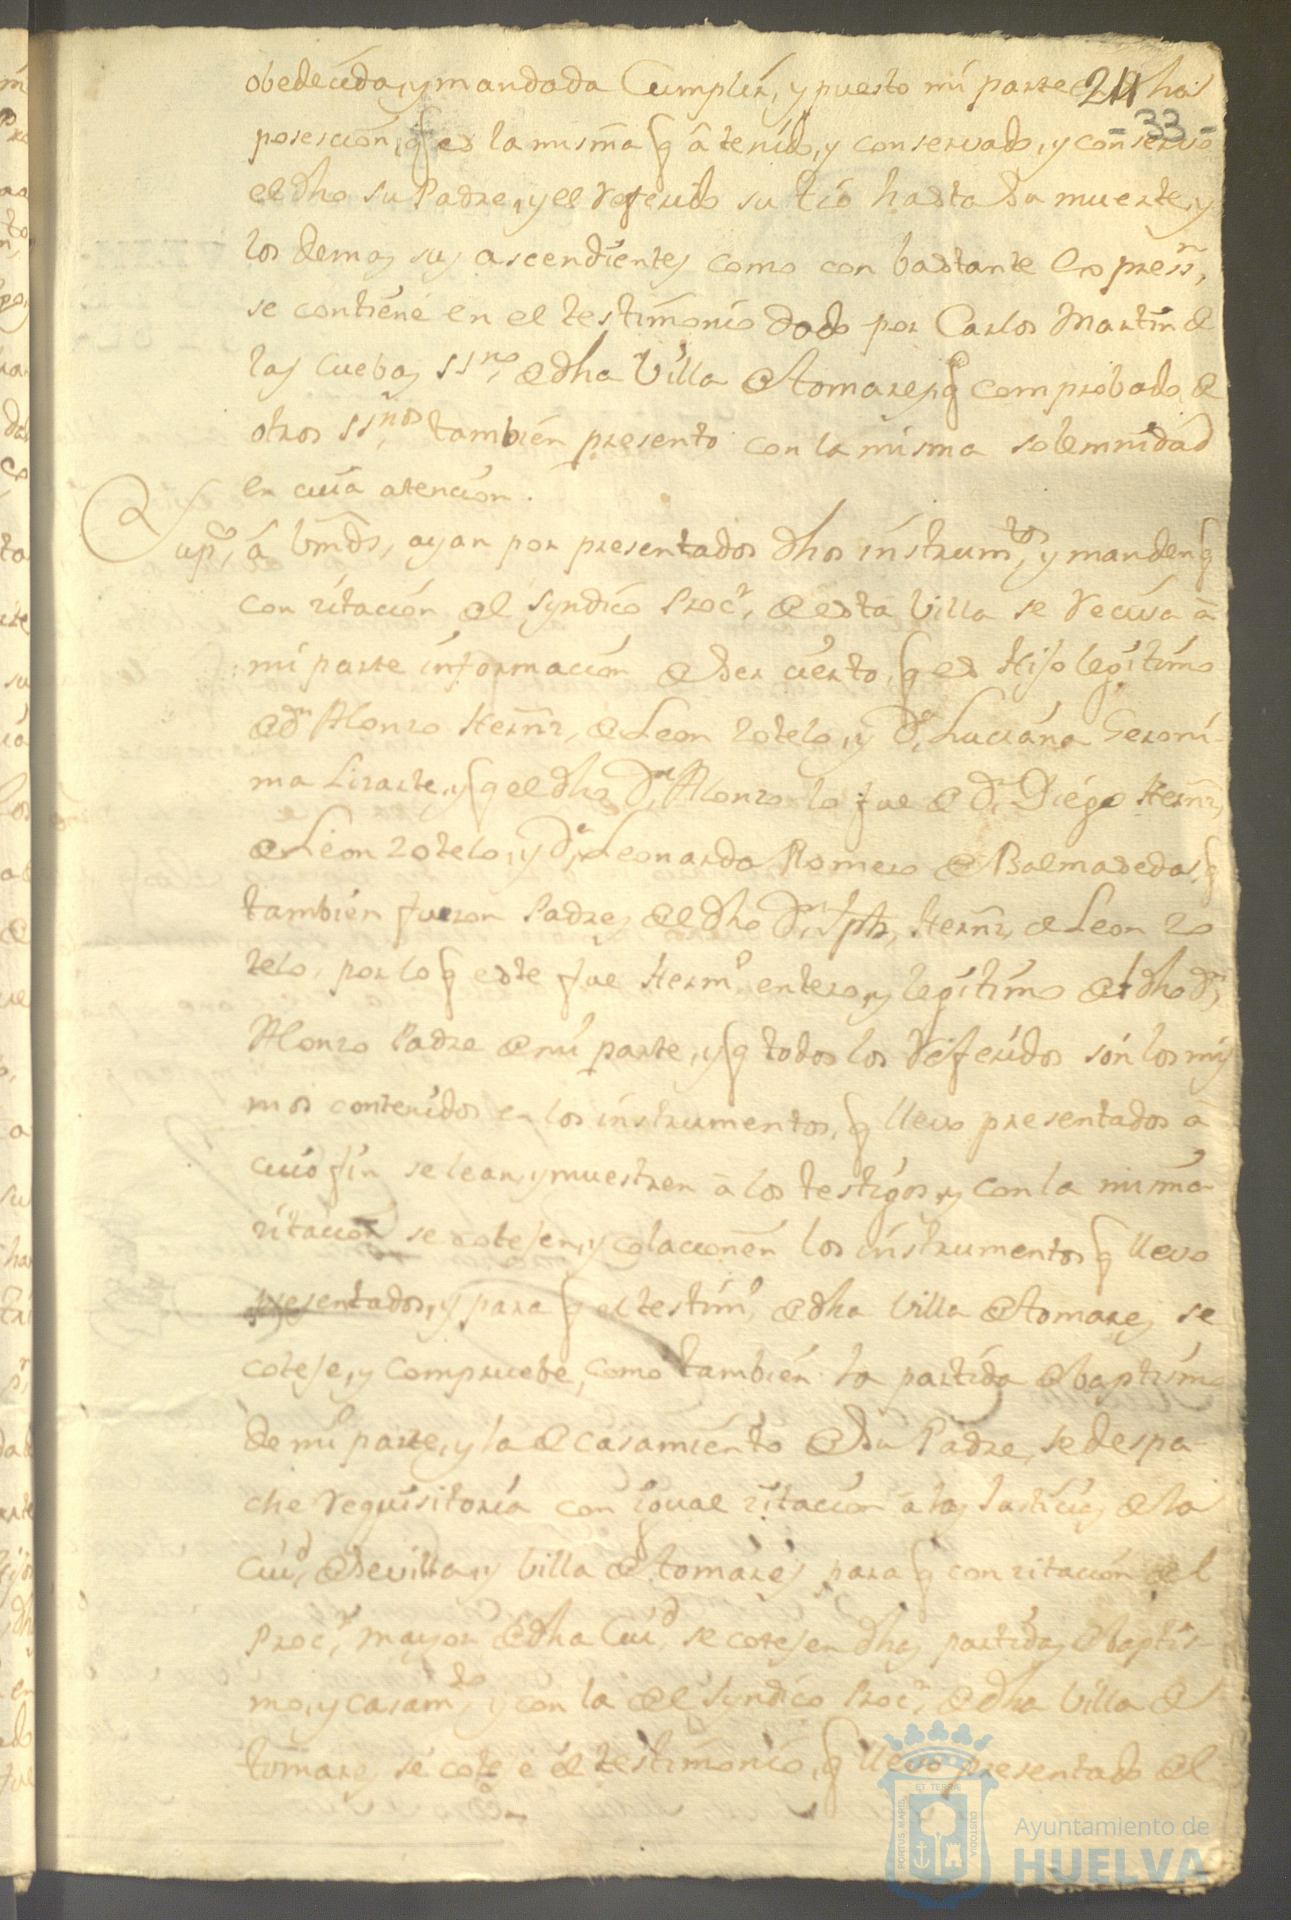 obedecida, y mandada Cumplir, y puesto mi parte en dha
24
- 33 -
posesion, q es la misma q â tenido, y conservado, y conservo
el dho su Padre, y el referido su tio hasta su muerte, y
los demas sus ascendientes como con bastante express.n,
se contiene en el testimonio dado por Carlos Martin de
las Cuebas ss.no, de dha Villa de tomares, q comprobado de
otros ss.nos tambien presento con la misma solemnidad
en cuia atencion.
Sup.co, â Vmds, ayan por presentados dhos instrum.tos, y manden q
con zitacion del Syndico Proc.r, de esta Villa se reciva â
mi parte informacion de ser cierto, q es Hijo legitimo
de d.n Alonzo Hernz, de Leon zotelo, y D.a, Luciana Geroni-
ma Lizarte, y q el dho D.n Alonzo lo fue de d.n Diego Hernz,
de Leon zotelo, y D.a, Leonarda Romero de Balmasedas, q
tambien fueron Padres del dho D.n Jph, Hernz, de Leon zo
telo, por lo q este fue Herm.o entero, y legitimo del dho d.n,
Alonzo Padre de mi parte, y q todos los referidos son los mis
mos contenidos en los instrumentos, q llevo presentados â
cuio fin se lean, y muestren â los testigos, y con la misma
zitacion se cotejen, y colacionen los instrumentos q llevo
presentados, y para q el testim.o de dha Villa de tomares se
coteje, y compruebe, como tambien la partida de baptismo
de mi parte, y la de casamiento de su Padre, se despa-
che requisitoria con igual zitacion â las Justicias de la
Ciu.d de Sevilla, y Villa de tomares para q con zitacion del
Proc.r mayor de dha Ciu.d se cotejen dhas partidas de baptis-
mo, y casam.to y con la del Syndico Proc.r, de dha Villa de
tomares se coteje el testimonio, q llevo presentado del
PORTUS MARIS ET TERRÆ CUSTODIA
Ayuntamiento de
HUELVA